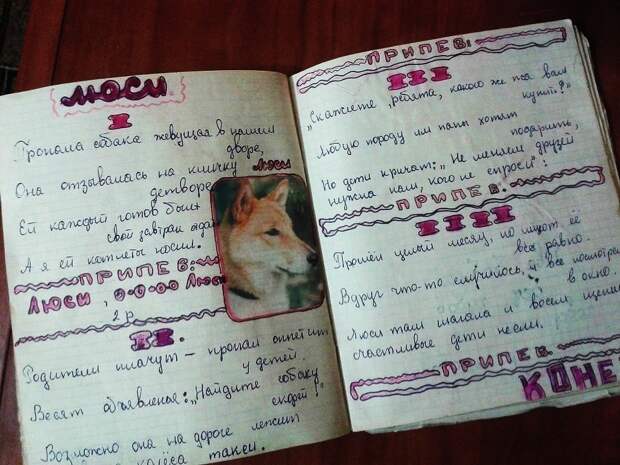 ЛЮСИ
I
Пропала собака жевущая в нашем
дворе,
Она отзывалась на кличку Люси
детворе
Ей каждый готов был
свой завтрак отда
А я ей катлеты носил.
ПРИПЕВ:
ЛЮСИ, О-О-ОО Люс
2 р.
II.
Родители плачут — пропал аппетит
у детей.
Весят объявленье: „Найдите собаку
скорей!"
Возможно она на дороге лежит
колёса такси.
ПРИПЕВ:
III
„Скажите, ребята, какого же пса вам
купить?"
Любую породу им папы хотят
подарить,
Но дети кричат: „Не меняем друзей
нужна нам, кого не спроси":
ПРИПЕВ.
IIII
Прошёл целый месяц, но ищут её
всё равно.
Вдруг что-то случилось, и все посмотрел
в окно.
Люси там шагала и восем щенк
счастливые дети несли.
ПРИПЕВ.
КОНЕ